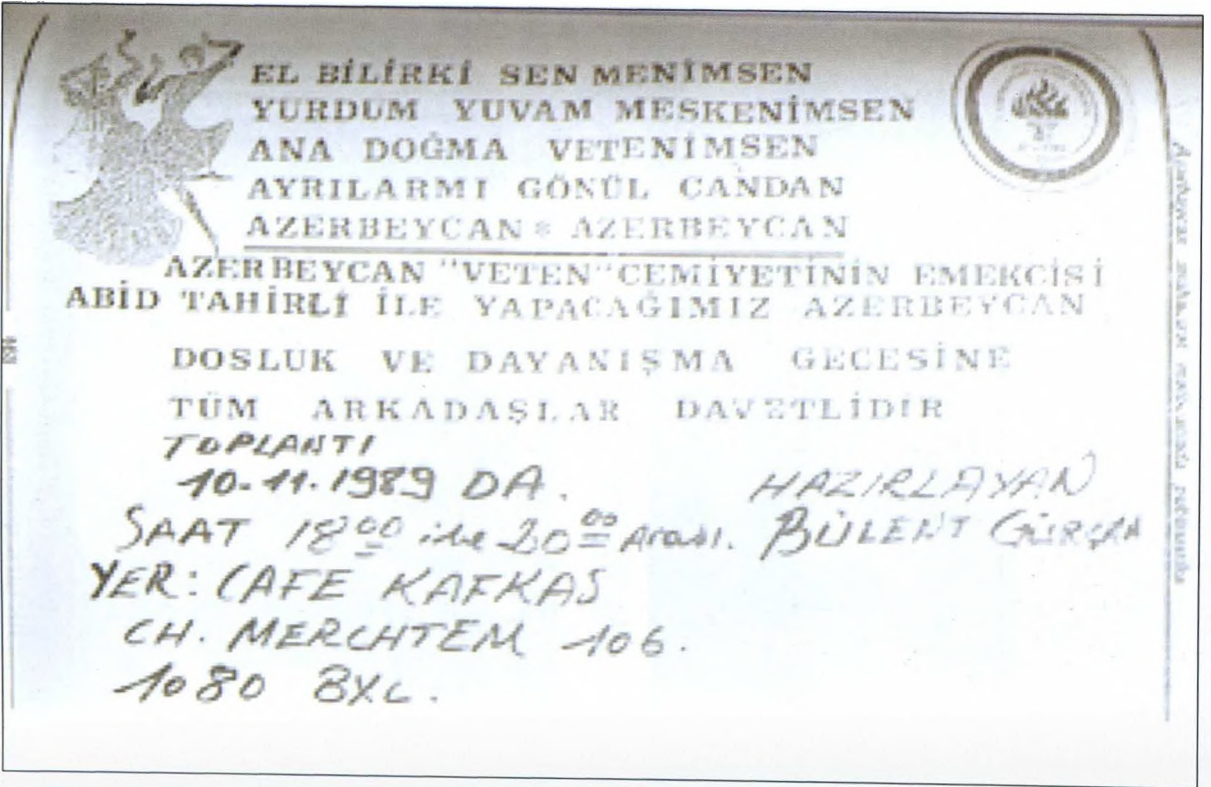 EL BİLİRKİ SEN MENİMSEN
YURDUM YUVAM MESKENİMSEN
ANA DOĞMA VETENİMSEN
AYRILARMI GÖNÜL CANDAN
AZERBEYCAN * AZERBEYCAN
AZERBEYCAN "VETEN" CEMİYETİNİN EMEKCİSİ
ABİD TAHİRLİ İLE YAPACAĞIMIZ AZERBEYCAN
DOSLUK VE DAYANIŞMA GECESİNE
TÜM ARKADAŞLAR DAVETLİDİR
TOPLANTI
10.11.1989 DA.
HAZIRLAYAN
SAAT 18 00 ile 20 00 Arası. BÜLENT
YER: CAFE KAFKAS
CH. MERCHTEM 106.
1080 BXL.